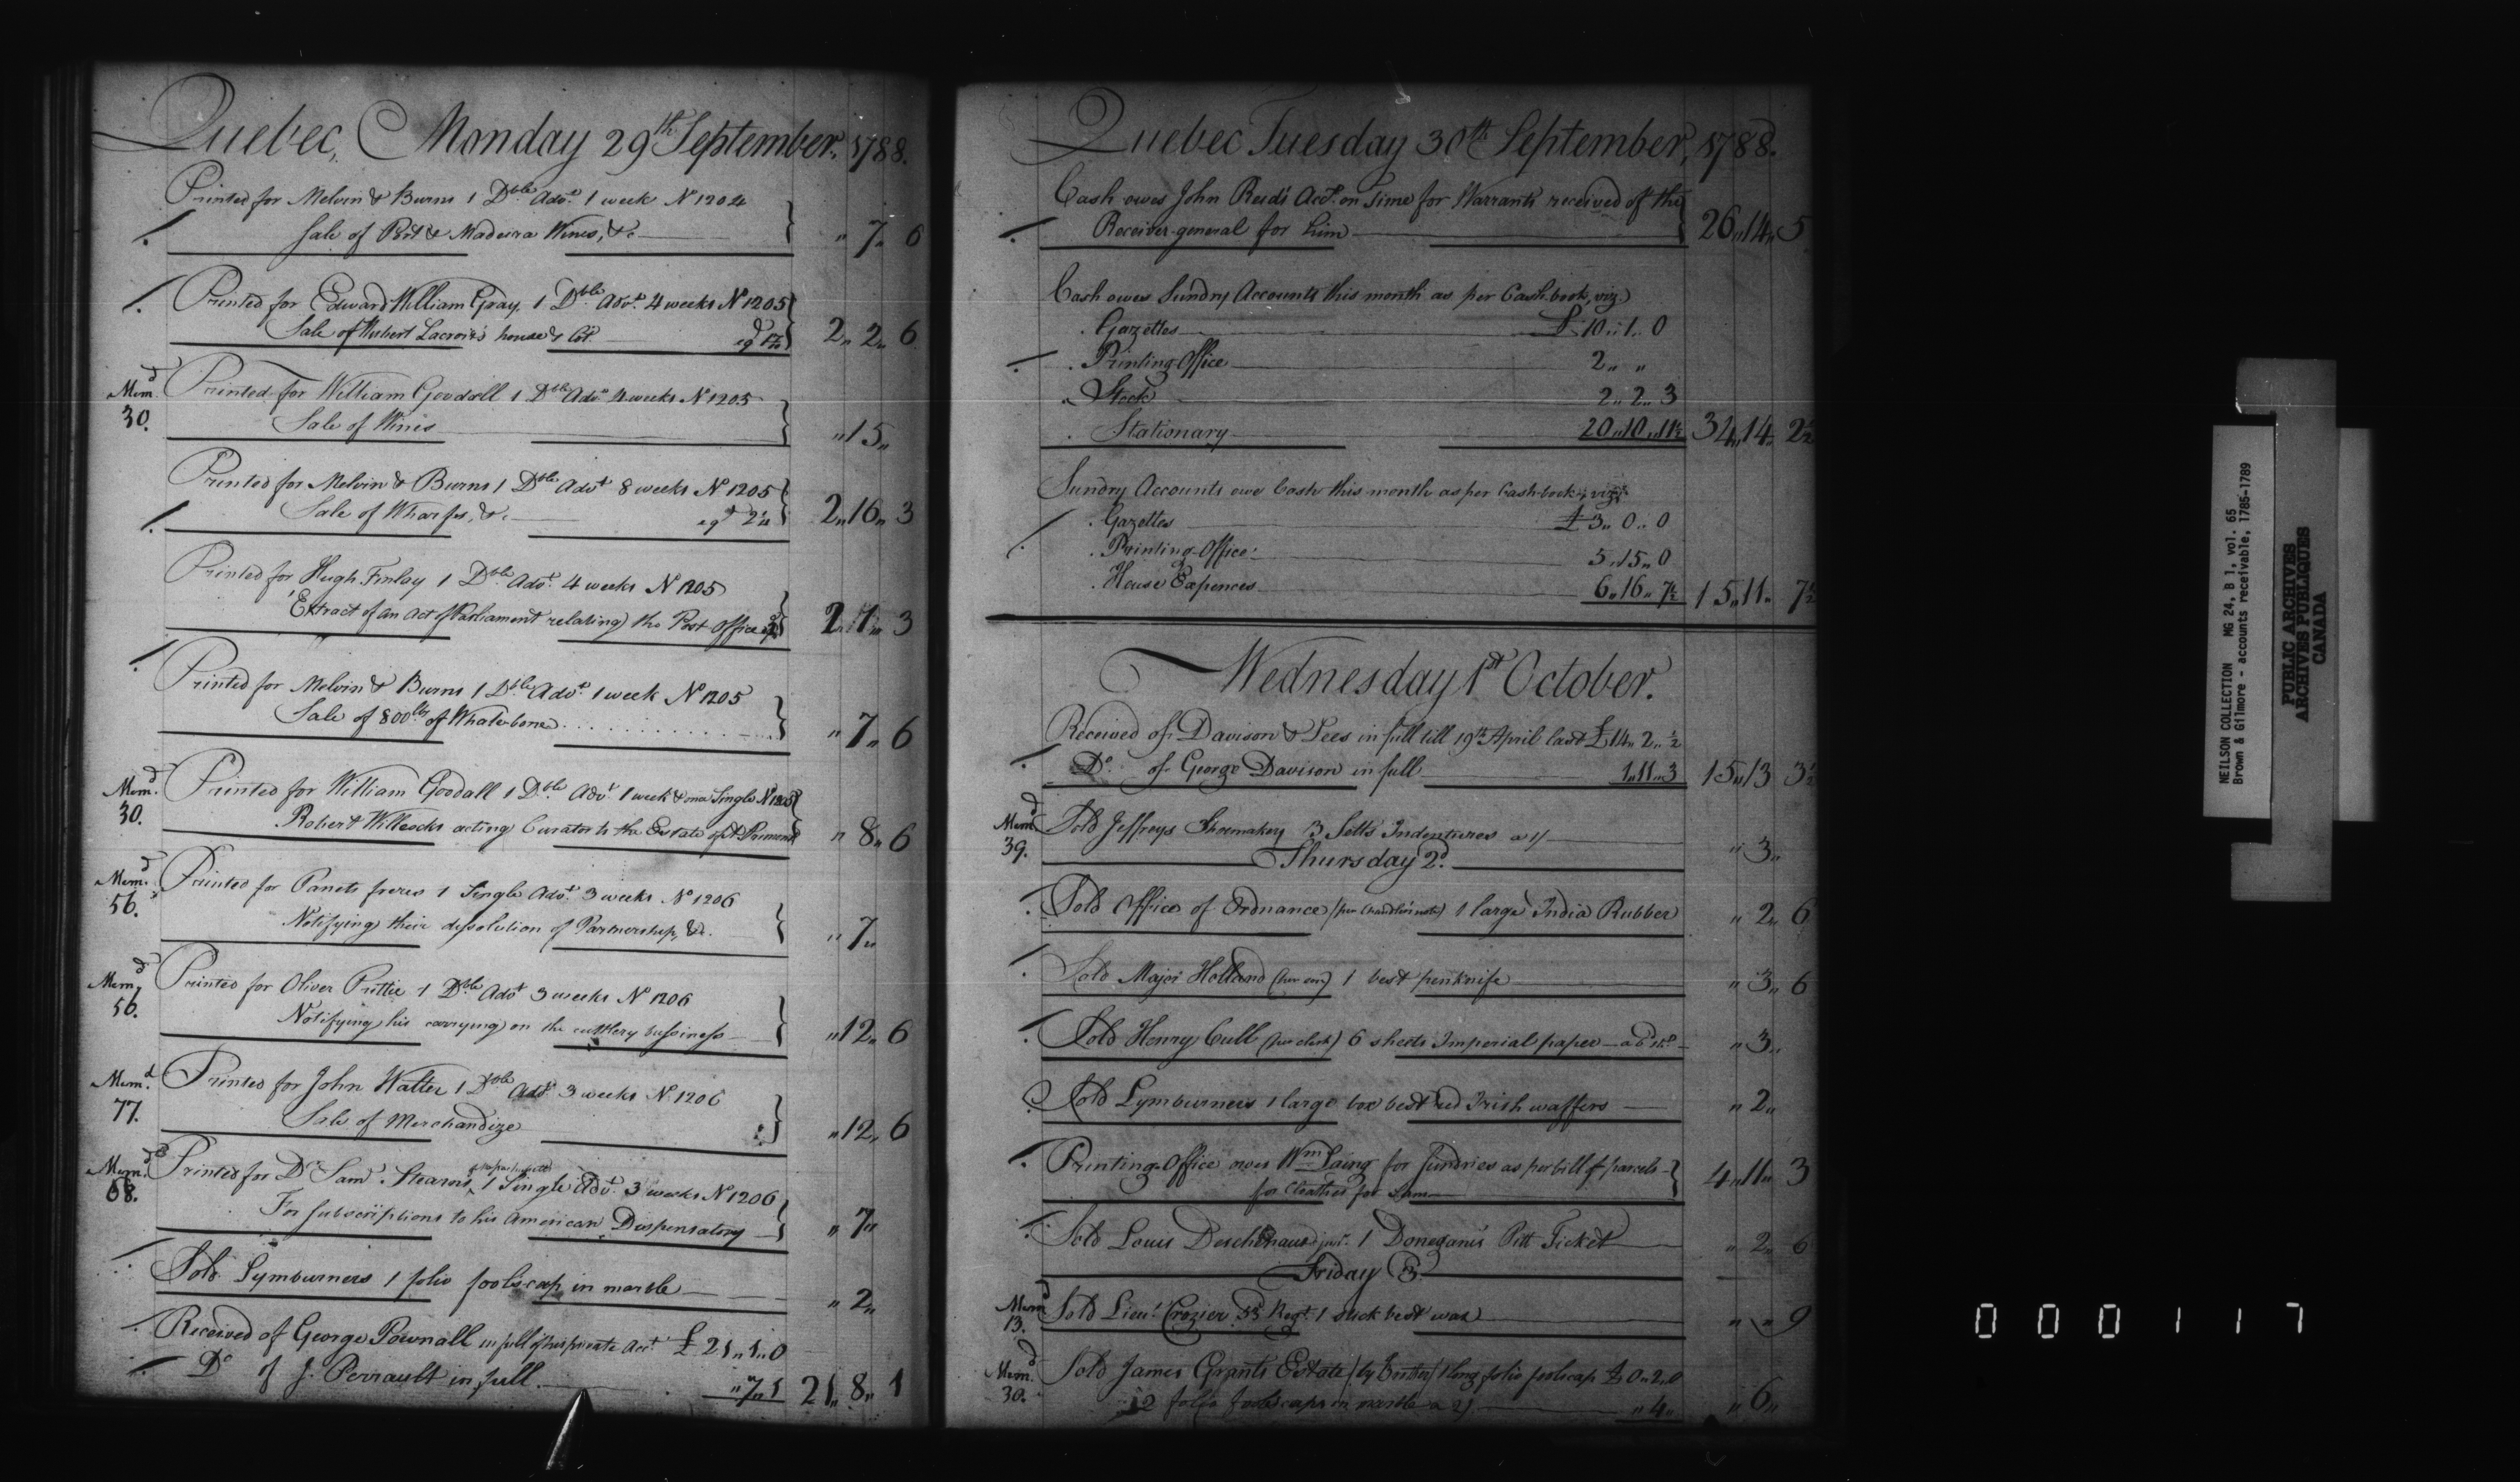 Quebec, Monday 29th September, 1788.
Printed for Melvin & Burns 1 Dble Advt 1 week No 1204
Sale of Port & Madeira Wines, &c " 7 " 6
Printed for Edward William Gray, 1 Dble Advt 4 weeks No 1205
Sale of Hubert Lacroix's house & lot 2 " 2 " 6
Memd 30. Printed for William Goodall 1 Dble Advt 4 weeks No 1205
Sale of Wines " 15 "
Printed for Melvin & Burns 1 Dble Advt 8 weeks No 1205
Sale of Wharfes, &c 2 " 16 " 3
Printed for Hugh Finlay 1 Dble Advt 4 weeks No 1205
Extract of an Act of Parliament relating the Post Office
Printed for Melvin & Burns 1 Dble Advt 1 week No 1205
Sale of 800 lbs of Whale-bone " 7 " 6
Memd 30. Printed for William Goodall 1 Dble Advt 1 week & one Single No 1205
Robert Willcocks acting Curator to the Estate of " 8 " 6
Memd 56. Printed for Panets freres 1 Single Advt 3 weeks No 1206
Notifying their dissolution of Partnership, &c. " 7 "
Memd 56. Printed for Oliver Prittie 1 Dble Advt 3 weeks No 1206
Notifying his carrying on the cuttlery bussiness " 12 " 6
Memd 77. Printed for John Walter 1 Dble Advt 3 weeks No 1206
Sale of Merchandize " 12 " 6
Memd 58. Printed for Dr Saml Stearns, 1 Single Advt 3 weeks No 1206
For subscriptions to his American Dispensatory " 7 "
Sold Lymburners 1 folio foolscap in marble " 2 "
Received of George Pownall in full of his private Acct £ 21 " 1 " 0
Do of J. Perrault in full " 7 " 1 21 " 8 " 1
Quebec Tuesday 30th September, 1788.
Cash owes John Reid's Acct on time for Warrants received of the
Receiver-general for him 26 " 14 " 5
Cash owes Sundry Accounts this month as per Cash-book, viz
Gazettes £ 10 " 1 " 0
Printing-Office 2 " "
Stock 2 " 2 " 3
Stationary 20 " 10 " 11½ 34 " 14 " 2½
Sundry Accounts owe Cash this month as per Cash-book, viz
Gazettes £ 3 " 0 " 0
Printing-Office 5 " 15 " 0
House Expences 6 " 16 " 7½ 15 " 11 " 7½
Wednesday 1st October.
Received of Davison & Lees in full till 19th April last £ 14 " 2 " ½
Do of George Davison in full 1 " 11 " 3 15 " 13 3½
Memd 39. Sold Jeffreys Shoemaker 3 Setts Indentures a 1/ " 3 "
Thursday 2d.
Sold Office of Ordnance 1 large India Rubber " 2 " 6
Sold Major Holland (per son) 1 best penknife " 3 " 6
Sold Henry Cull (per clerk) 6 sheets Imperial paper " 3 "
Sold Lymburners 1 large box best red Irish waffers " 2 "
Printing-Office owes Wm Laing for Sundries as per bill of parcels
for cloathes for Sam 4 " 11 " 3
Sold Louis Deschenaux junr. 1 Donegani's Pitt Ticket " 2 " 6
Friday 3.
Memd 13. Sold Lieut Crozier 53 Regt. 1 stick best wax " " 9
Memd 30. Sold James Grants Estate 1 long folio foolscap £ 0 " 2 " 0
2 folio foolscaps in marble a 2/ " 4 " " 6 "
NEILSON COLLECTION MG 24, B 1, vol. 65
Brown & Gilmore - accounts receivable, 1785-1789
PUBLIC ARCHIVES
ARCHIVES PUBLIQUES
CANADA
000117